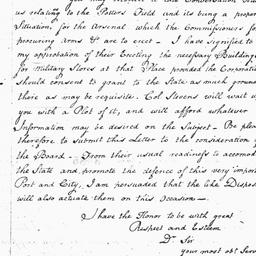 us relating to the Potters Field and its being a proper
Situation, for the Arsenal which the Commissioners for
procuring Arms &c are to erect – I have signified to
my approbation of their Erecting the necessary Buildings
for Military Stores at that Place provided the Corporation
should consent to grant to the State as much ground
there as may be requisite. Col Stevens will wait up
you with a Plot of it, and will afford whatever
Information may be desired on the Subject – Be plea
therefore to submit this Letter to the consideration of
the Board – From their usual readiness to accomod
the State and promote the defence of this very import
Port and City, I am persuaded that the like Disposi
will also actuate them on this occasion –
I have the Honor to be with great
Respect and Esteem
Dr Sir
your most obt Serv